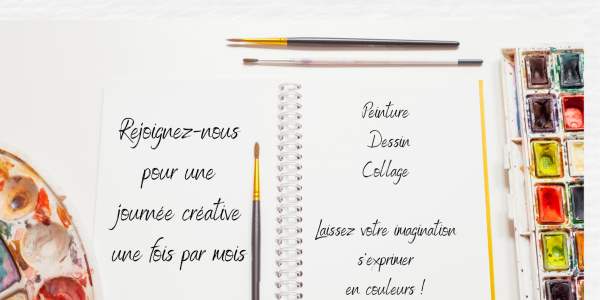 Rejoignez-nous
pour une
journée créative
une fois par mois
Peinture
Dessin
Collage
Laissez votre imagination
s'exprimer
en couleurs !